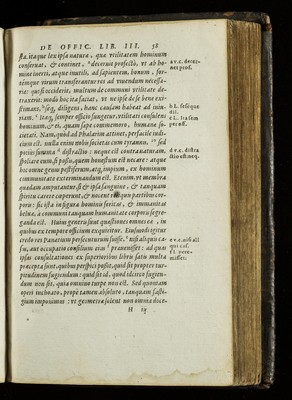 DE OFFIC. LIB. III. 58
sta. itaque lex ipsa natura, quæ vtilitatem hominum
conseruat, & continet, ᵃ decernet profectò, vt ab ho-
mine inerti, atque inutili, ad sapientem, bonum, for-
témque virum transferantur res ad viuendum necessa-
riæ: qui si occiderit, multum de communi vtilitate de-
traxerit: modò hoc ita faciat, vt ne ipse de se bene exi-
stimans, ᵇ seq, diligens, hanc causam habeat ad iniu-
riam. ᶜ Itaq, semper officio fungetur, vtilitati consulens
hominum, & ei, quam sæpe commemoro, humanæ so-
cietati. Nam quod ad Phalarim attinet, perfacile iudi-
cium est. nulla enim nobis societas cum tyrannis, sed
potius summa ᵈ distractio: neque est contra naturam,
spoliare eum, si possis, quem honestum est necare: atque
hoc omne genus pestiferum, atq, impium, ex hominum
communitate exterminandum est. Etenim vt membra
quædam amputantur, si & ipsa sanguine, & tanquam
spiritu carere cœperunt, & nocent reliquis partibus cor-
poris: sic ista in figura hominis feritas, & immanitas
belua, à communi tanquam humanitate corporis segre-
ganda est. Huius generis sunt quæstiones omnes ea, in
quibus ex tempore officium exquiritur. Eiusmodi igitur
credo res Panætium persecuturum fuisse, ᵉ nisi aliquis ca-
sus, aut occupatio consilium eius ᶠ præuenisset: ad quas
ipsas consultationes ex superioribus libris satis multa
præcepta sunt, quibus perspici possit, quid sit propter tur-
pitudinem fugiendum: quid sit id, quod idcirco fugien-
dum non sit, quia omnino turpe non est. Sed quoniam
operi inchoato, propè tamen absoluto, tanquam fasti-
gium imponimus: vt geometræ solent non omnia doce-
H ij
a v.c. decer-
net prof.
b L. seséque
dil.
c L. Ita sem
per off.
d v.c. distra
ctio est: neq.
e v.c. nisi ali
qui cas.
f l. pere-
misset: